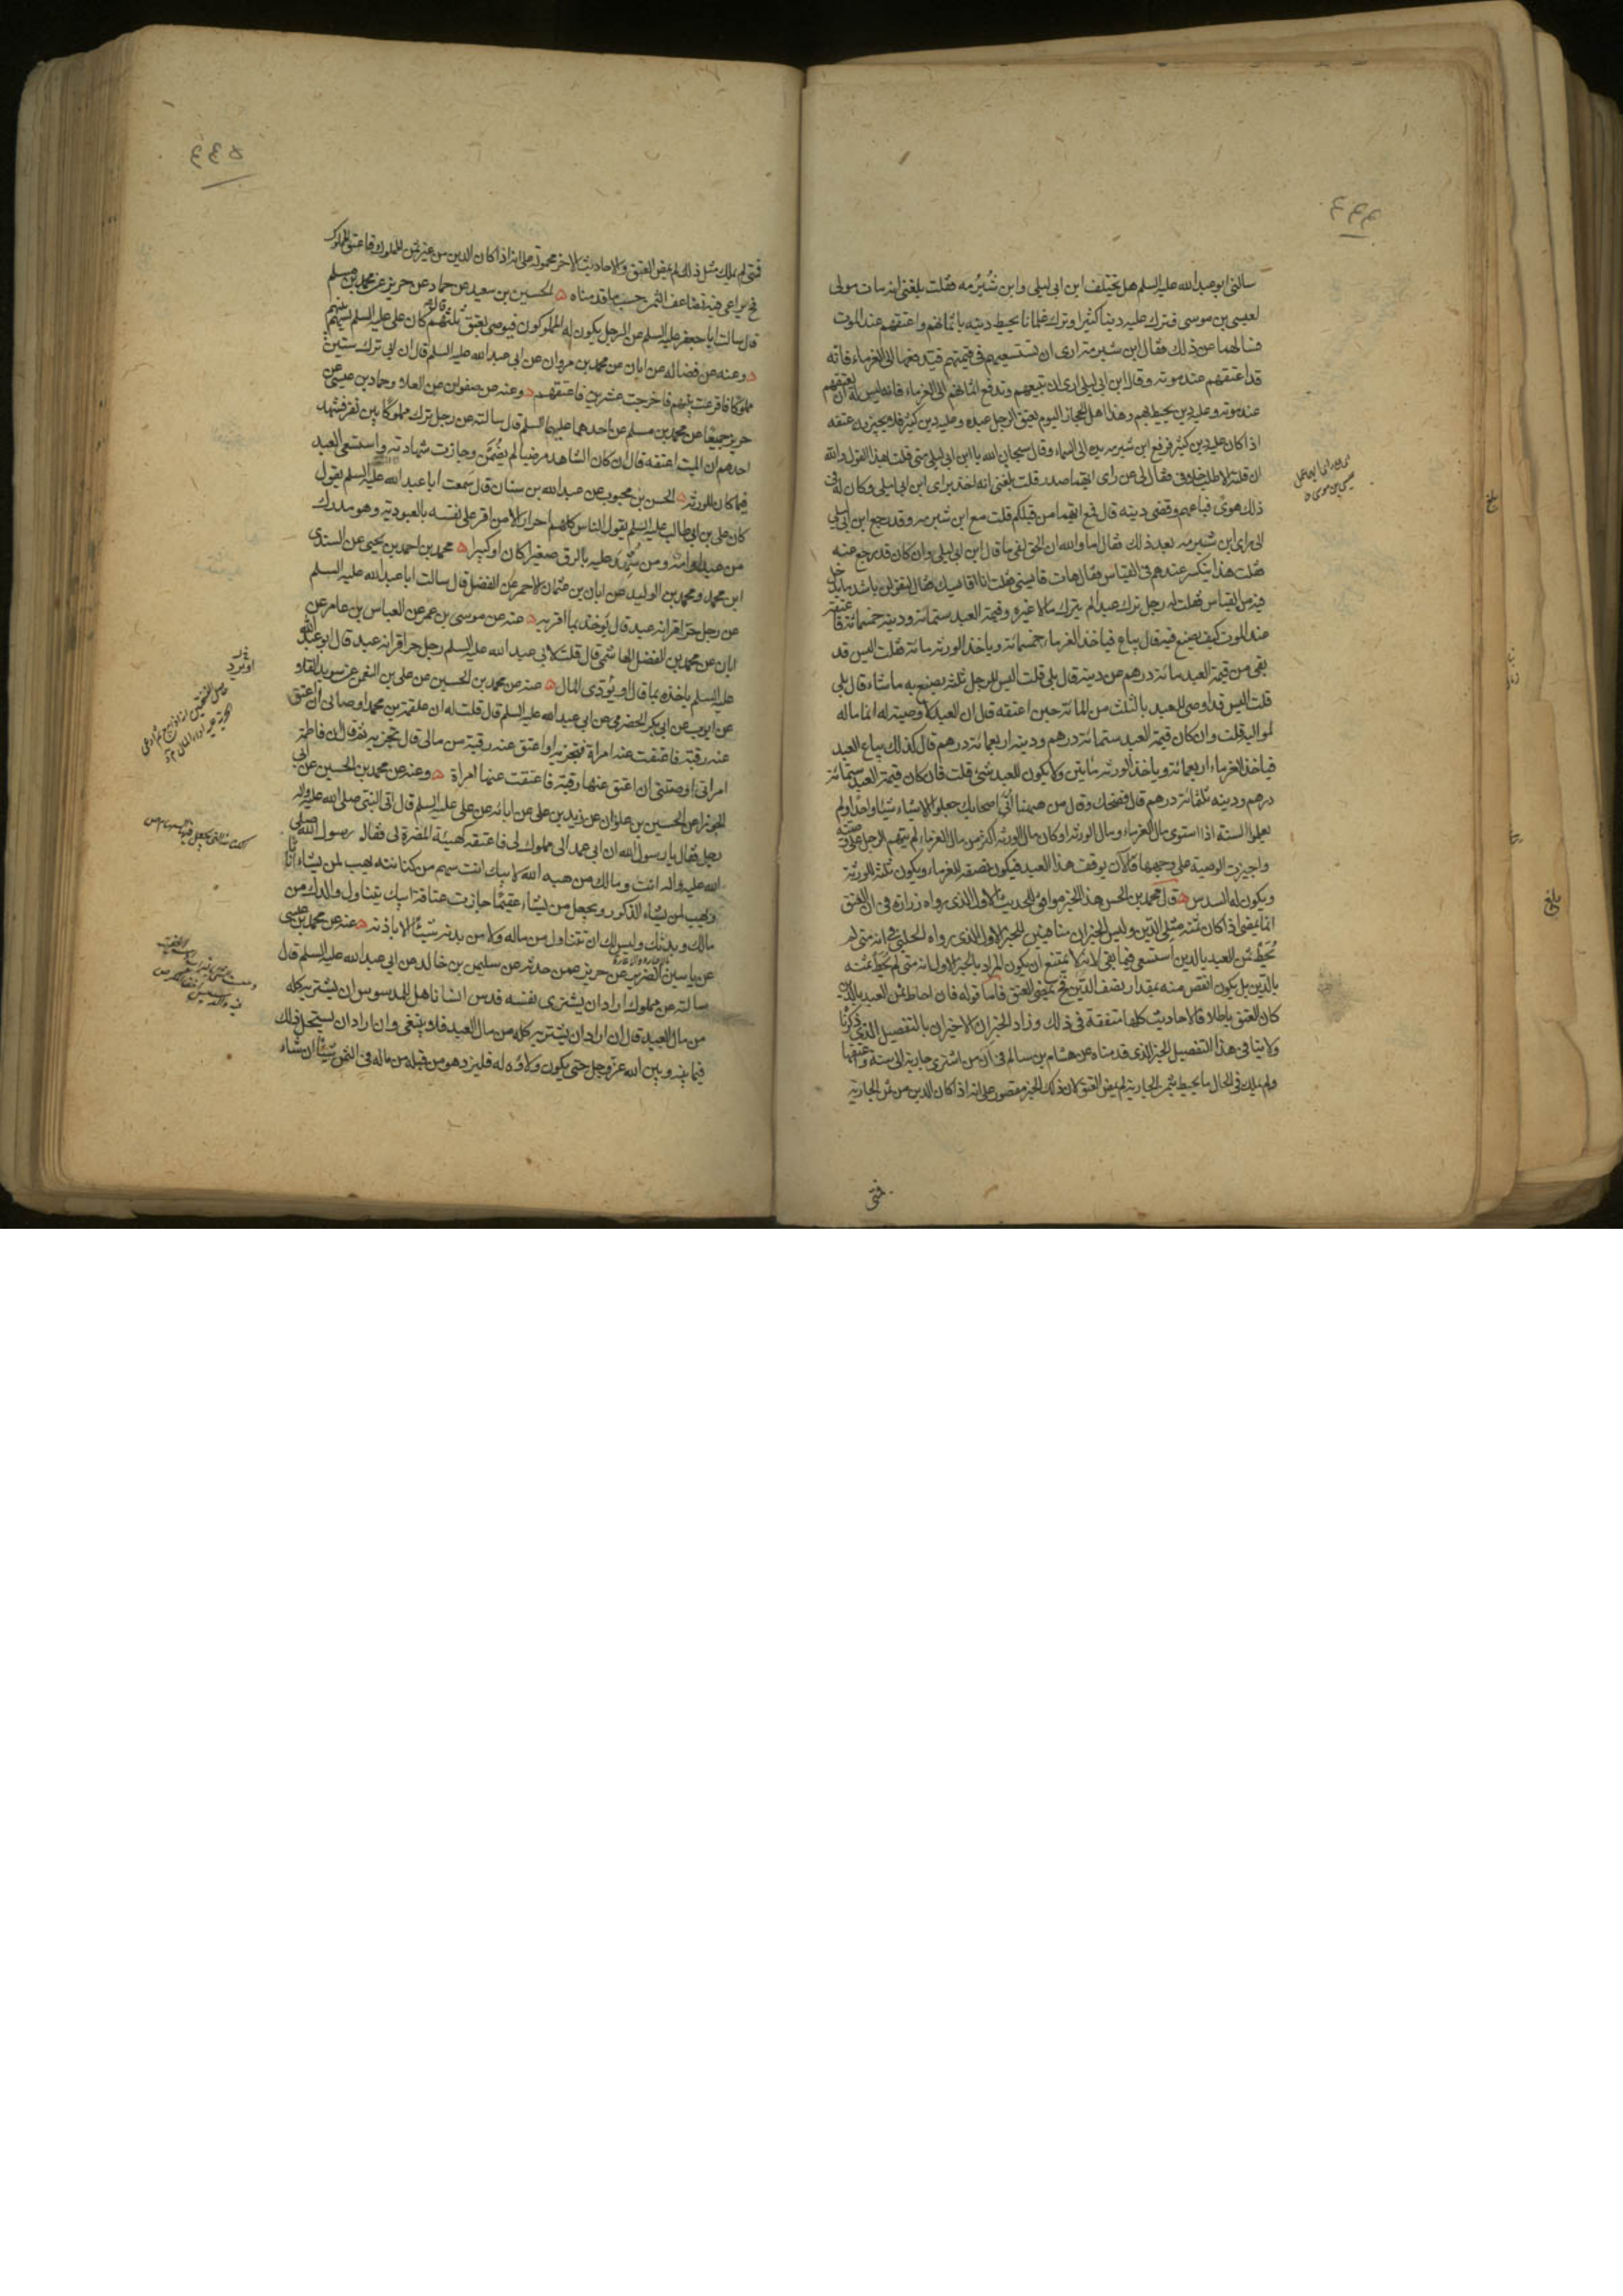 سالنی ابو عبدالله علیه السلم هل یختلف ابن ابی لیلی وابن شُبْرُمه فقلت بلغنی انه مات مولی
لعیسی بن موسی فترک علیه دینا کثیرا وترک غلمانا یحیط دینه باثمانهم واعتقهم عند الموت
فسالهما عن ذلک فقال ابن شبرمة اری ان تستسعیهم فی قیمتهم فتدفعها الی الغرماء فانه
قد اعتقهم عند موته وقال ابن ابی لیلی اری ان تبیعهم وتدفع اثمانهم الی الغرماء فانه لیس له ان یعتقهم
عند موته وعلیه دین یحیط بهم وهذا اهل الحجاز الیوم یعتق الرجل عبده وعلیه دین کثیر فلا یجیزون عتقه
اذا کان علیه دین کثیر فرفع ابن شبرمه یده الی السماء وقال سبحان الله یا ابن ابی لیلی متی قلت بهذا القول والله
ان قلته الا طلب خلافی فقال لی عن رای ایهما صدر قلت بلغنی انه اخذ برای ابن ابی لیلی وکان له فی
ذلک هویً فباعهم وقضی دینه قال فمع ایهما من قبلکم قلت مع ابن شبرمه وقد رجع ابن ابی لیلی
الی رای ابن شبرمه بعد ذلک فقال اما والله ان الحق لفی ما قال ابن ابی لیلی وان کان قد رجع عنه
فقلت هذا ینکسر عندهم فی القیاس فقال هات قایسنی فقلت انا اقایسک فقال لتقولن باشد ما یدخل
فیه من القیاس فقلت له رجل ترک عبدا لم یترک مالا غیره وقیمة العبد ستمائة ودینه خمسمائة فاعتقه
عند الموت کیف یصنع فیه قال یباع فیاخذ الغرماء خمسمائة ویاخذ الورثه مائة فقلت الیس قد
بقی من قیمة العبد مائة درهم عن دینه قال بلی قلت الیس للرجل ثلثه یصنع به ما شاء قال بلی
قلت الیس قد اوصی للعبد بالثلث من المائة حین اعتقه قال ان العبد لا وصیة له انما ماله
لموالیه قلت وان کان قیمة العبد ستمائة درهم ودینه اربعمائة درهم قال کذلک یباع العبد
فیاخذ الغرماء اربعمائة ویاخذ الورثه مایتین ولا یکون للعبد شیء قلت فان کان قیمة العبد ستمائة
درهم ودینه ثلثمائة درهم قال فضحک وقال من هیهنا اُتی اصحابک جعلوا الاشیاء شیئا واحدا ولم
یعلموا السنة اذا استوی مال الغرماء ومال الورثه او کان مال الورثه اکثر من مال الغرماء لم یتهم الرجل علی وصیته
واجیزت الوصیة علی وجهها فالان یوقف هذا العبد فیکون نصفه للغرماء ویکون ثلثه للورثه
ویکون له السدس قال محمد بن الحسن هذا الخبر موافق للحدیث الاول الذی رواه زرارة فی ان العتق
انما یمضی اذا کان ثمنه مثلی الدین ولیس الخبران منافیین للخبر الاول الذی رواه الحلبی فی انه متی لم
تُحِطْ ثمن العبد بالدین استسعی فیما بقی لانه لا یمتنع ان یکون المراد بالخبر الاول انه متی لم یحط ثمنه
بالدین بل یکون انقص منه بمقدار نصف الدین فح یمضی العتق فاما قوله فان احاط ثمن العبد بالدین
کان العتق باطلا فالاحادیث کلها متفقة فی ذلک وزاد الخبران الاخیران بالتفصیل الذی ذکرنا
ولا ینافی هذا التفصیل الخبر الذی قدمناه عن هشام بن سالم فی ان من اشتری جاریة الی سنة واعتقها
ولم یملک فی الحال ما یحیط بثمن الجاریة لم یمض العتق لان ذلک الخبر مقصور علی انه اذا کان الدین من ثمن الجاریه
فمتی
فمتی لم یملک مثل ذلک لم یمض العتق والاحادیث الاخر محموله علی انه اذا کان الدین من غیر ثمن المملوک واعتق المملوک
فح یراعی فیه تضاعف الثمن حسب ما قدمناه الحسین بن سعید عن حماد عن حریز عن محمد بن مسلم
قال سالت ابا جعفر علیه السلم عن الرجل یکون له المملوکون فیوصی بعتق ثلثهم قال کان علی علیه السلم یسهم بینهم
وعنه عن فضاله عن ابان عن محمد بن مروان عن ابی عبدالله علیه السلم قال ان ابی ترک ستین
مملوکا فاقرعت بینهم فاخرجت عشرین فاعتقتهم وعنه عن صفوان عن العلا وحماد بن عیسی عن
حریز جمیعا عن محمد بن مسلم عن احدهما علیهما السلم قال سالته عن رجل ترک مملوکا بین نفر فشهد
احدهم ان المیت اعتقه قال ان کان الشاهد مرضیا لم یضُمَّن وجازت شهادته واستسعی العبد
فیما کان للورثه الحسن بن محبوب عن عبدالله بن سنان قال سمعت ابا عبدالله علیه السلم یقول
کان علی بن ابی طالب علیه السلم یقول الناس کلهم احرار الا من اقر علی نفسه بالعبودیة وهو مدرک
من عبد او امة ومن شُهِدَ علیه بالرق صغیرا کان او کبیرا محمد بن احمد بن یحیی عن السندی
ابن محمد ومحمد بن الولید عن ابان بن عثمان الاحمر عن الفضل قال سالت ابا عبدالله علیه السلم
عن رجل حر اقر انه عبد قال یوخذ بما اقر به عنه عن موسی بن عمر عن العباس بن عامر عن
ابان عن محمد بن الفضل الهاشمی قال قلت لابی عبدالله علیه السلم رجل حر اقر انه عبد قال ابو عبدالله
علیه السلم یاخذه بما قال او یُؤدی المال عنه عن محمد بن الحسین عن علی بن النعمن عن سوید القلاو
عن ایوب عن ابی بکر الحضرمی عن ابی عبدالله علیه السلم قال قلت له ان علقمة بن محمد اوصانی ان اعتق
عنه رقبة فاعتقت عنه امراة فتجزیه او اعتق عنه رقبة من مالی قال تجزیه ثم قال ان فاطمة
امراتی اوصتنی ان اعتق عنها رقبة فاعتقت عنها امراة وعنه عن محمد بن الحسین عن ابی
الجوزا عن الحسین بن علوان عن زید بن علی عن ابائه عن علی علیه السلم قال اتی النبی صلی الله علیه واله
رجل فقال یا رسول الله ان ابی عمد الی مملوک لی فاعتقه کهیئة المضرة لی فقال رسول الله صلی
الله علیه واله انت ومالک من هبه الله لابیک انت سهم من کنانته یهب لمن یشاء اناثا
ویهب لمن یشاء الذکور ویجعل من یشاء عقیمًا جازت عتاقة ابیک یتناول والدک من
مالک وبدنک ولیس لک ان تتناول من ماله ولا من بدنه شیئا الا باذنه عنه عن محمد بن عیسی
عن یاسین الضریر عن حریز عمن حدثه عن سلیمن بن خالد عن ابی عبدالله علیه السلم قال
سالته عن مملوک اراد ان یشتری نفسه فدس انسانا هل للمدسوس ان یشتریه کله
من مال العبد قال ان اراد ان یشتریه کله من مال العبد فلا ینبغی وان اراد ان یستحل ذلک
فیما بینه وبین الله عز وجل حتی یکون ولاؤه له فلیزد هو من قبله من ماله فی الثمن شیئا ان شاء